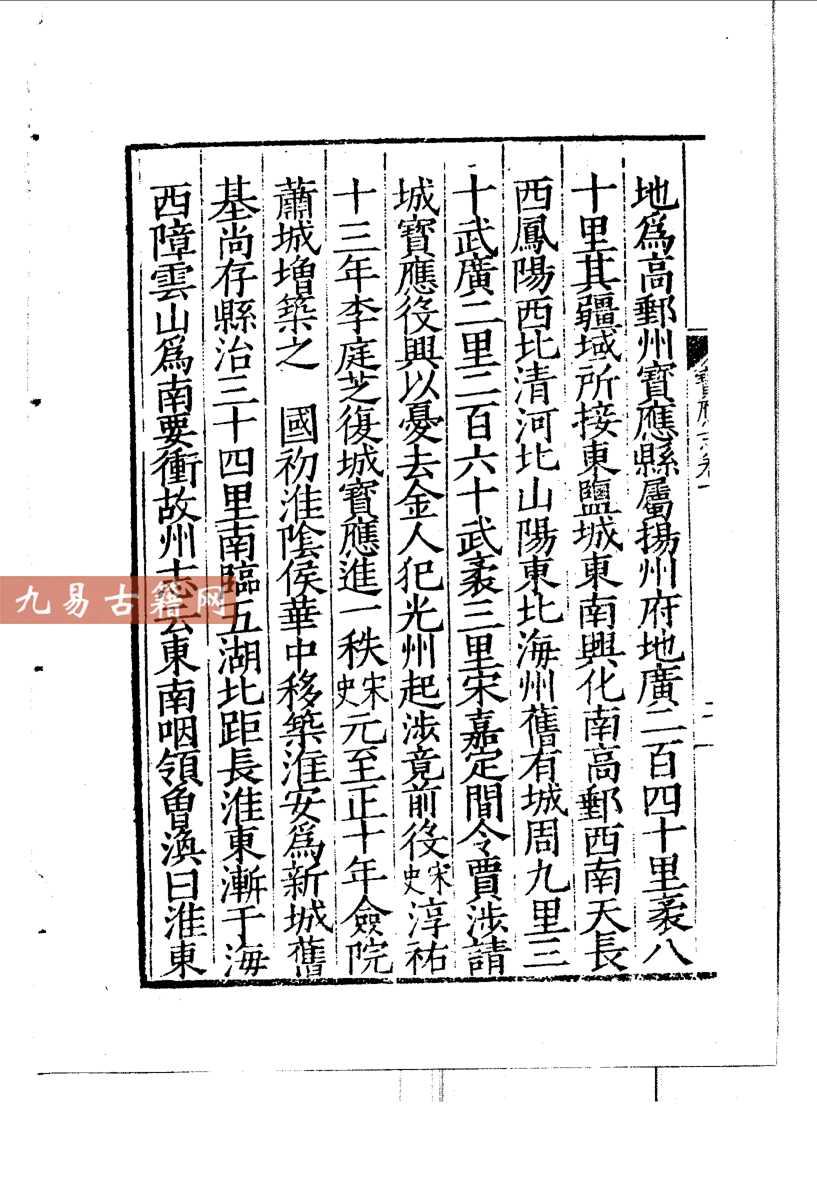 地爲高郵州寳應縣屬揚州府地廣二百四十里袤八
十里其疆域所接東鹽城東南興化南高郵西南天長
西鳳陽西北清河北山陽東北海州舊有城周九里三
十武廣二里二百六十武袤三里宋嘉定間令賈涉請
城寳應役興以憂去金人犯光州起涉竟前役宋史淳祐
十三年李庭芝復城寳應進一秩宋史元至正十年僉院
蕭城增築之 國初淮陰侯華中移築淮安爲新城舊
基尚存縣治三十四里南臨五湖北距長淮東漸于海
西障雲山爲南要衝故州志云東南咽領魯渙曰淮東
九易古籍网